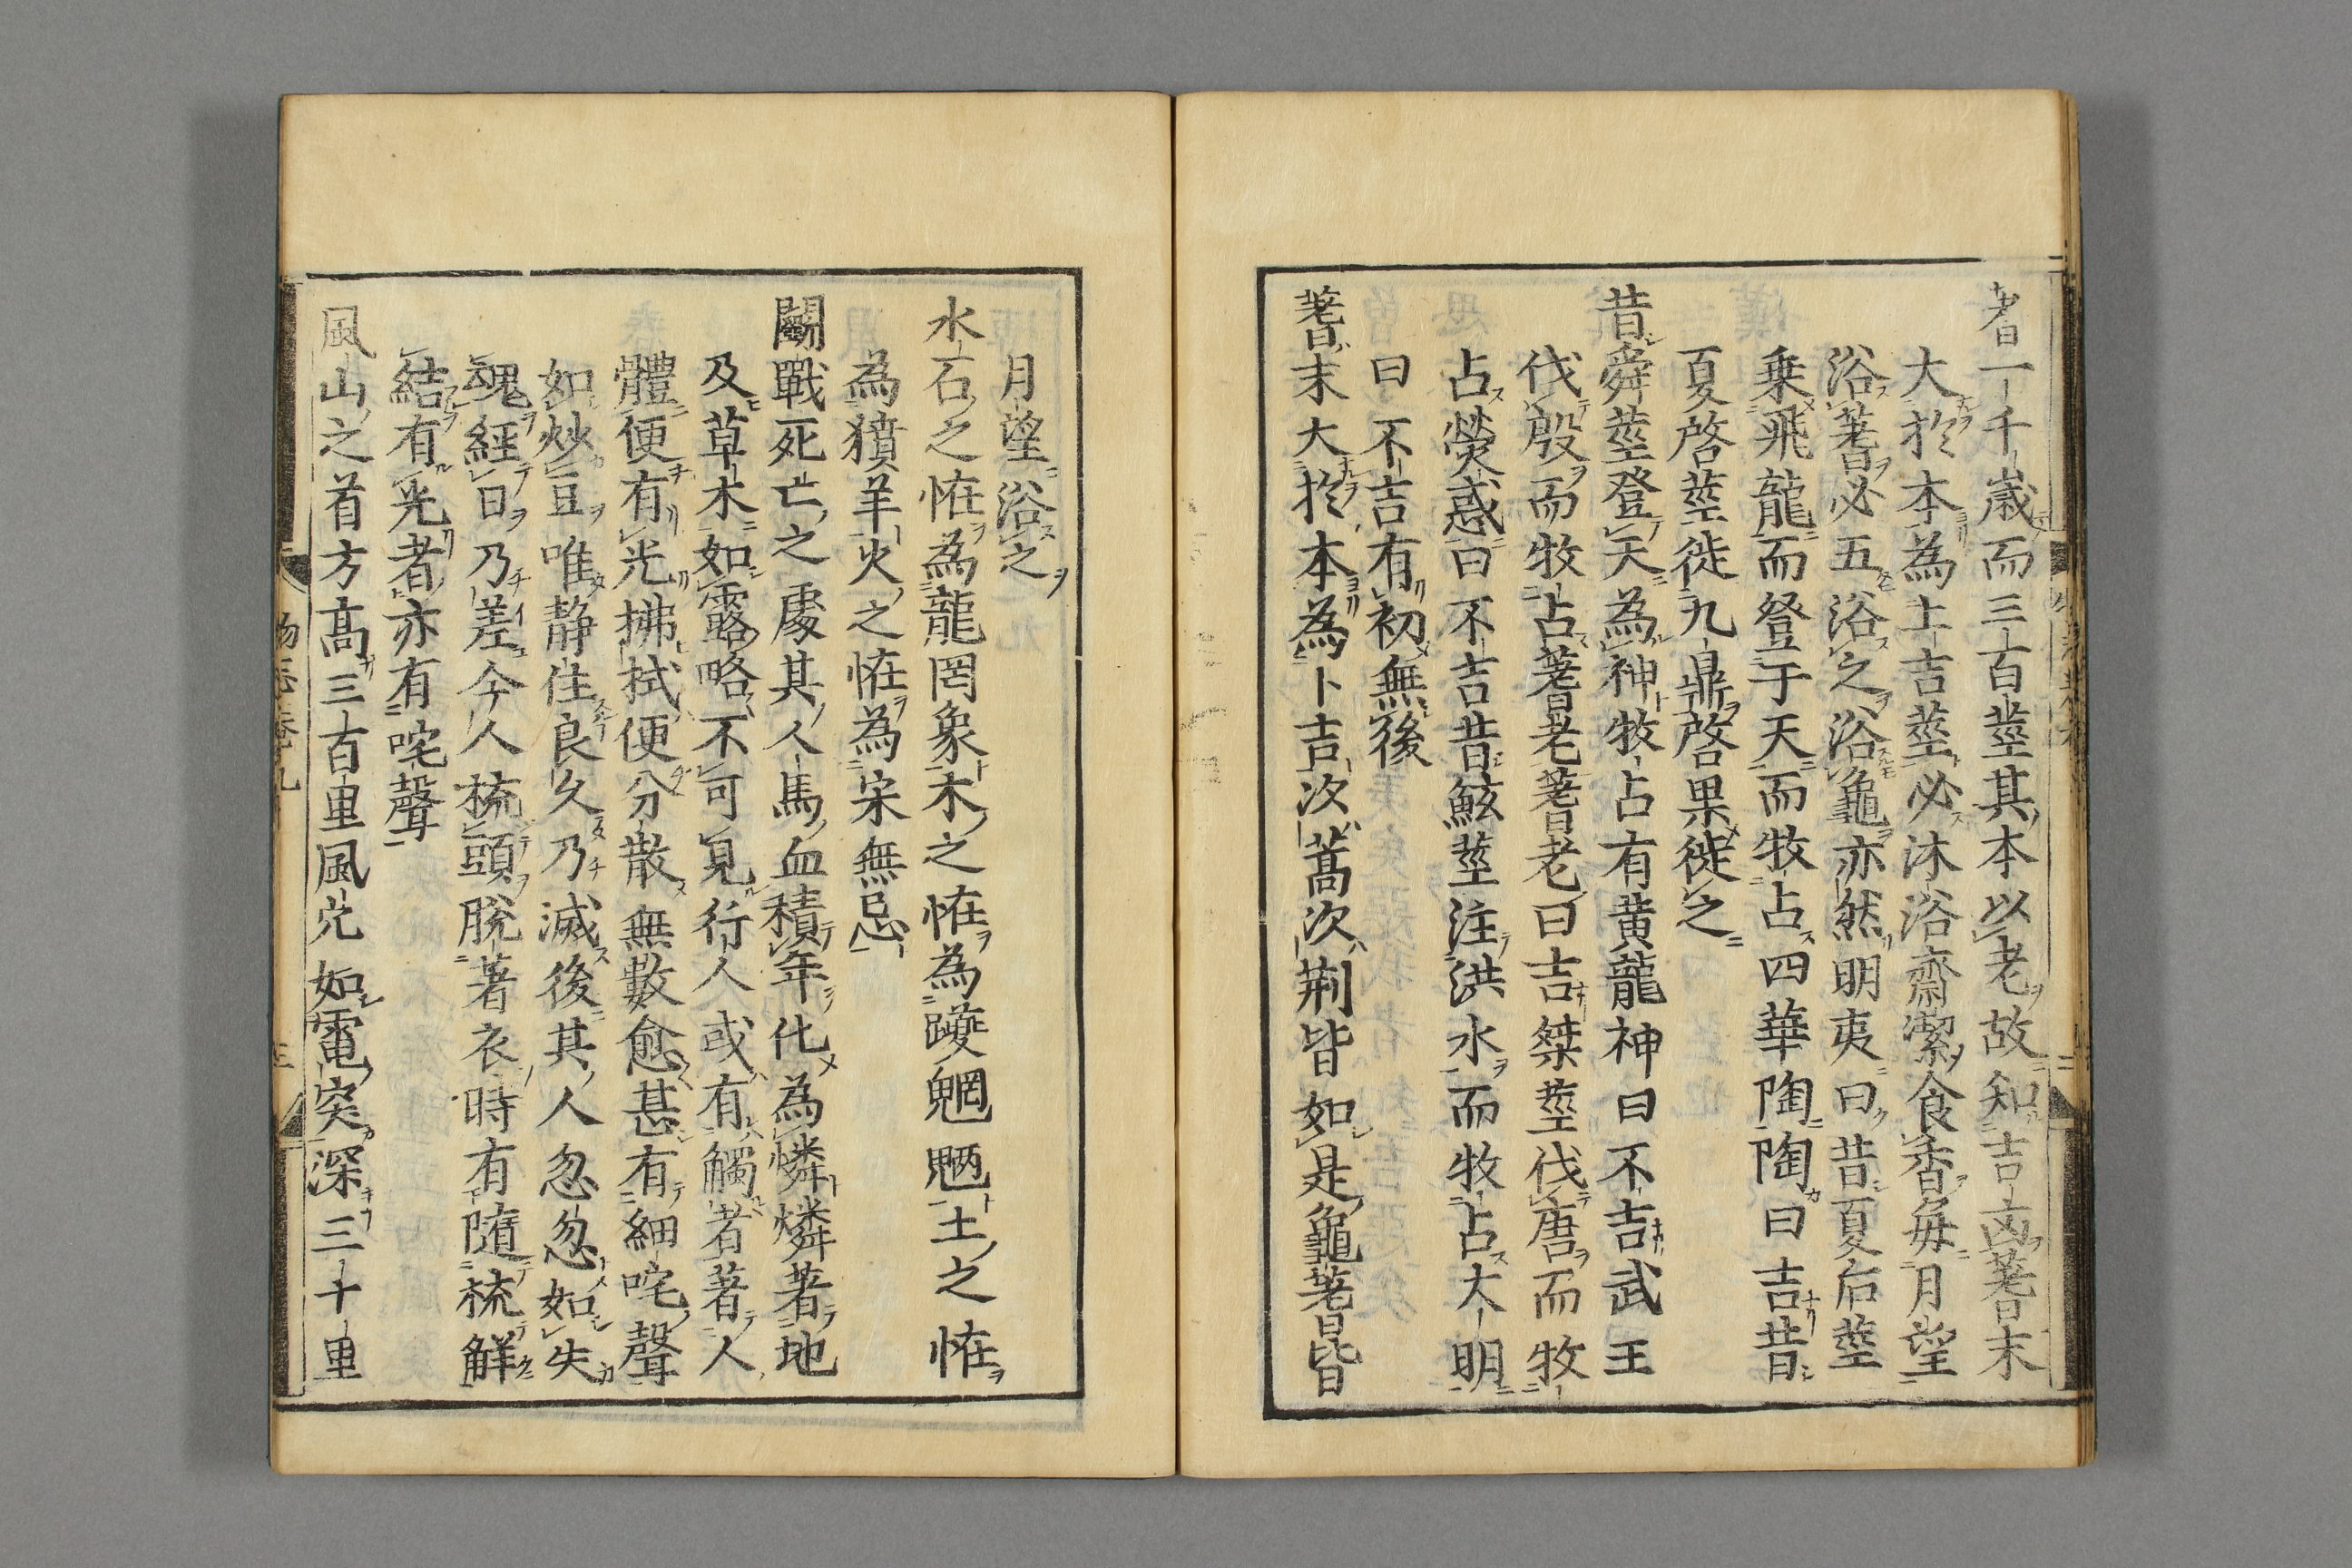 蓍一千歲而三百莖其本以老故知吉凶蓍末
大於本為上吉莖必沐浴齋潔食香每月望
浴蓍必五浴之浴龜亦然明夷曰昔夏后莖
乗飛龍而登于天而牧占四華陶陶曰吉昔
夏啓莖徙九鼎啓果徙之
昔舜莖登天為神牧占有黄龍神曰不吉武王
伐殷而牧占蓍老蓍老曰吉桀莖伐唐而牧
占熒惑曰不吉昔鮌莖注洪水而牧占大明
曰不吉有初無後
蓍末大於本為卜吉次蒿次荆皆如是龜蓍皆
月望浴之
水石之恠為龍罔象木之恠為躨魍魎土之恠
為獖羊火之恠為宋無忌
鬭戰死亡之處其人馬血積年化為憐燐著地
及草木如露略不可見行人或有觸者著人
體便有光拂拭便分散無數愈甚有細咤聲
如炒豆唯静住良久乃滅後其人忽忽如失
魂經日乃差今人梳頭脫著衣時有隨梳觧
結有光者亦有咤聲
風山之首方髙三百里風穴如電突深三十里
物志卷九